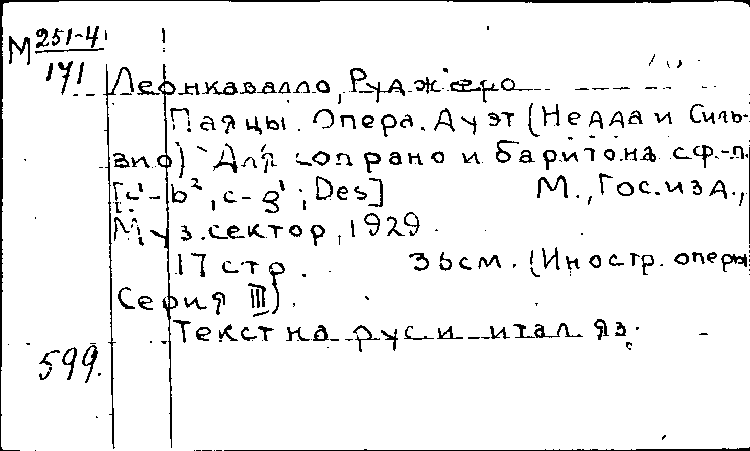 М 251-4
171
Леонкавалло, Руджеро
Паяцы. Опера. Дуэт (Недда и Силь-
вио) Для сопрано и баритона с ф.-п.
[c¹-b², c-g¹; Des] М., Гос. изд.,
Муз. сектор, 1929.
17 стр. 35см. (Иностр. оперы
Серия III).
Текст на рус и итал яз.
599.